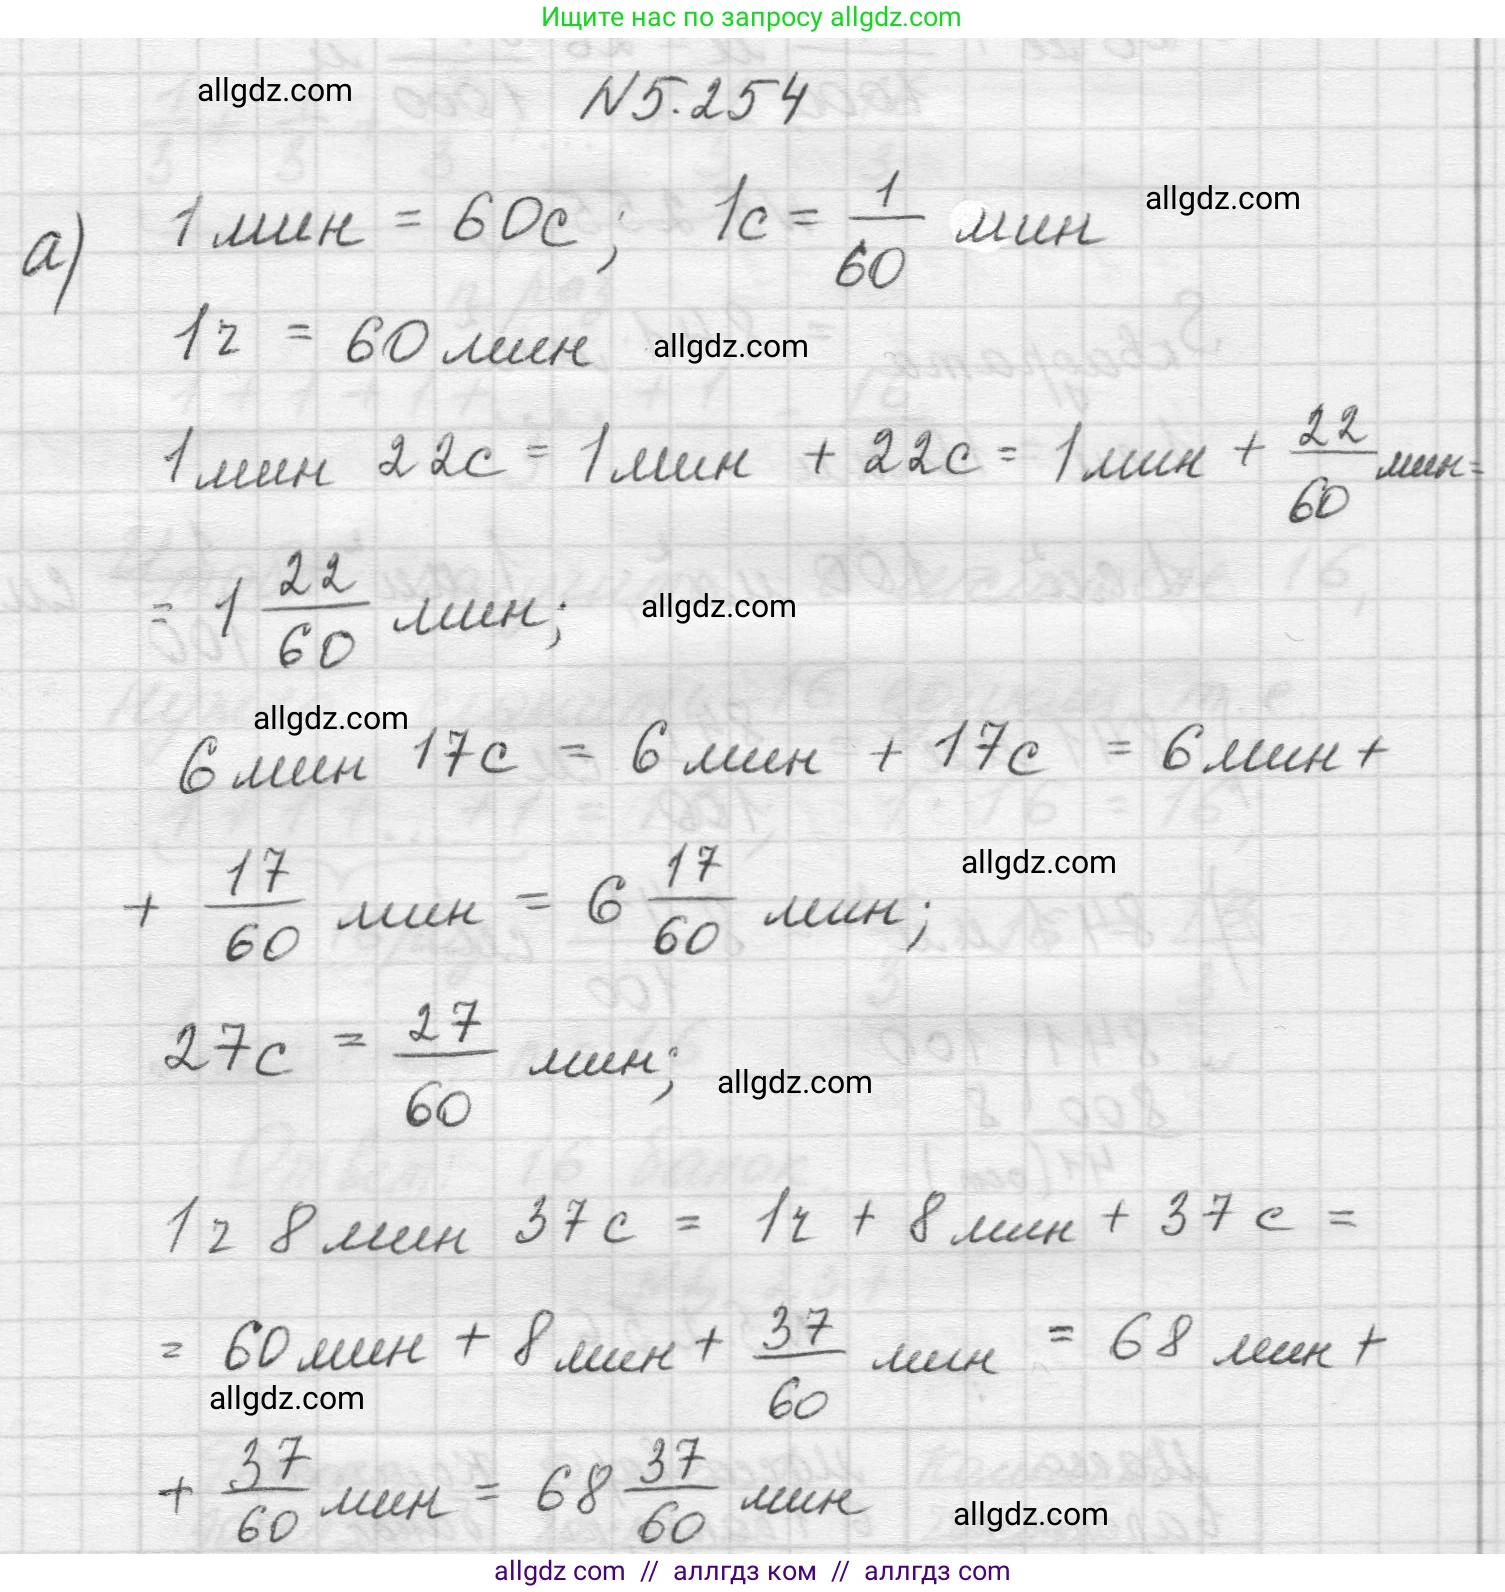 Ищите нас по запросу allgdz.com
allgdz.com
N5.254
а) 1мин = 60с; 1с = 1/60 мин
allgdz.com
1ч = 60мин
allgdz.com
1мин 22с = 1мин + 22с = 1мин + 22/60 мин =
= 1 22/60 мин;
allgdz.com
allgdz.com
6мин 17с = 6мин + 17с = 6мин +
+ 17/60 мин = 6 17/60 мин;
allgdz.com
27с = 27/60 мин;
allgdz.com
1ч 8мин 37с = 1ч + 8мин + 37с =
= 60мин + 8мин + 37/60 мин = 68 мин +
allgdz.com
+ 37/60 мин = 68 37/60 мин
allgdz.com
allgdz.com // аллгдз ком // аллгдз.com